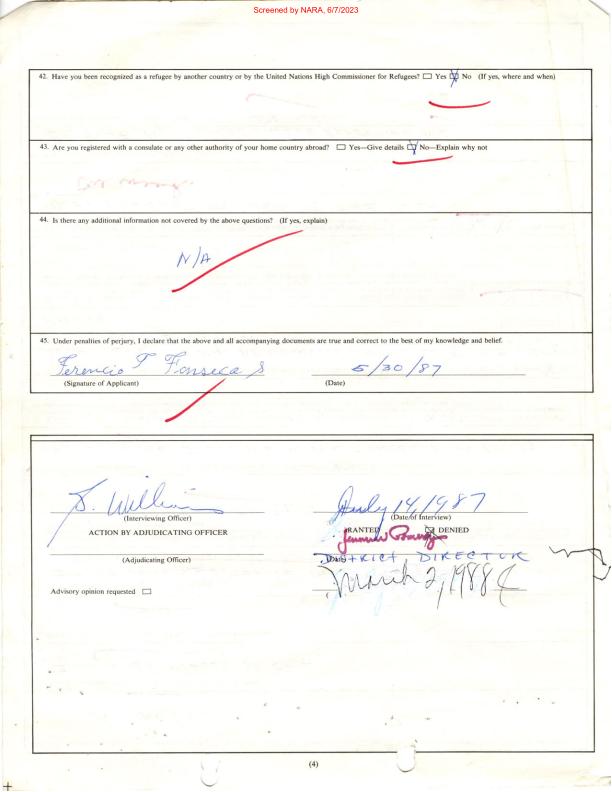 Screened by NARA, 6/7/2023
42. Have you been recognized as a refugee by another country or by the United Nations High Commissioner for Refugees? ☐ Yes ☑ No (If yes, where and when)
43. Are you registered with a consulate or any other authority of your home country abroad? ☐ Yes—Give details ☑ No—Explain why not
44. Is there any additional information not covered by the above questions? (If yes, explain)
N/A
45. Under penalties of perjury, I declare that the above and all accompanying documents are true and correct to the best of my knowledge and belief.
Terencio T Fonseca S 5/30/87
(Signature of Applicant) (Date)
S. Willi July 14, 1987
(Interviewing Officer) (Date of Interview)
ACTION BY ADJUDICATING OFFICER GRANTED ☒ DENIED
DISTRICT DIRECTOR
(Adjudicating Officer)
March 2, 1988
Advisory opinion requested ☐
(4)